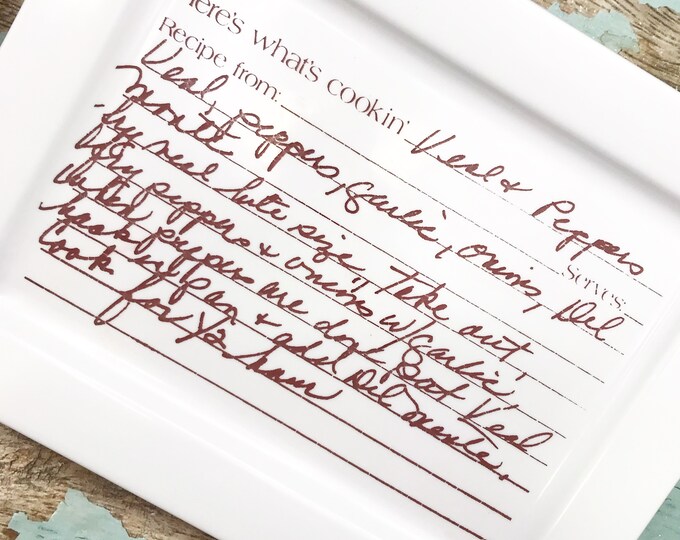 Here's what's cookin' Veal & Peppers
Recipe from: Serves:
Veal, peppers, garlic, onions, Del
monte
fry veal bite size, take out
fry peppers & onions w/ garlic,
when peppers are done put veal
back in pan & add Del monte.
Cook for ½ hour